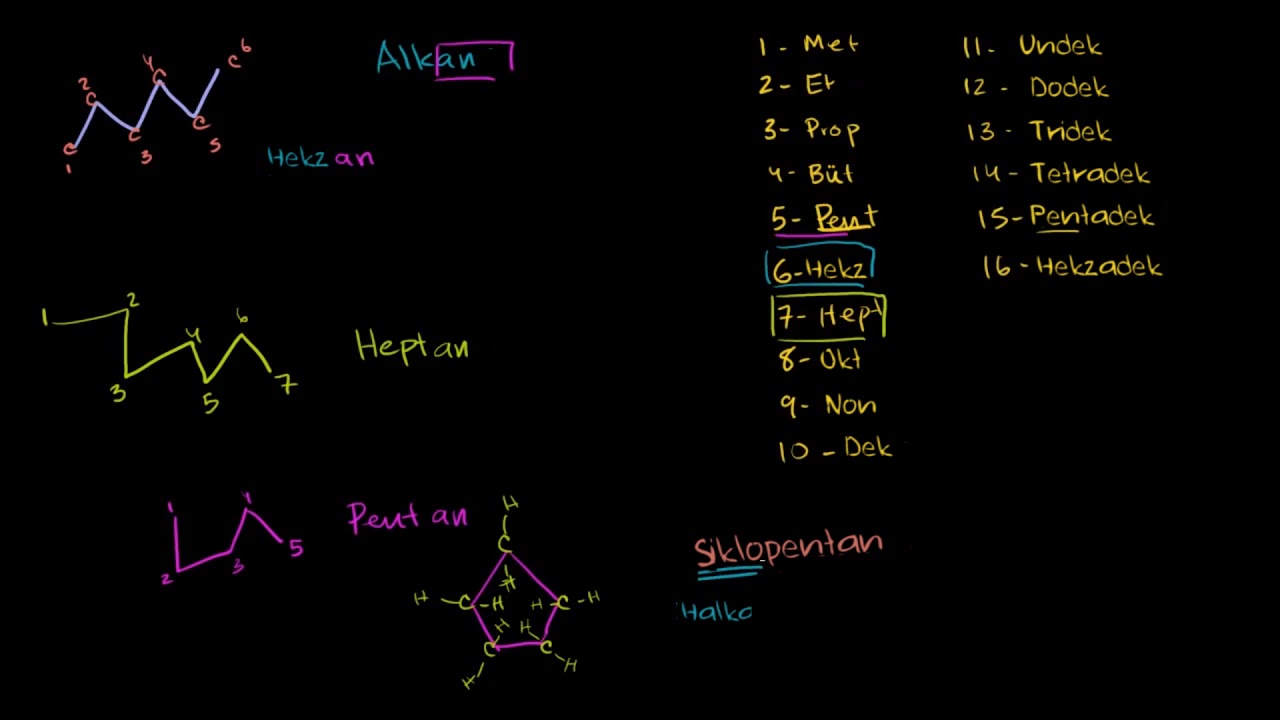 Alkan
C 1
C 2
C 3
C 4
C 5
C 6
Hekzan
1 2 3 4 5 6 7
Heptan
1 2 3 4 5
Pentan
H
C
H
H - C - H
H - C - H
H H
C C
H H
Siklopentan
Halka
1 - Met
2 - Et
3 - Prop
4 - Büt
5 - Pent
6 - Hekz
7 - Hept
8 - Okt
9 - Non
10 - Dek
11 - Undek
12 - Dodek
13 - Tridek
14 - Tetradek
15 - Pentadek
16 - Hekzadek